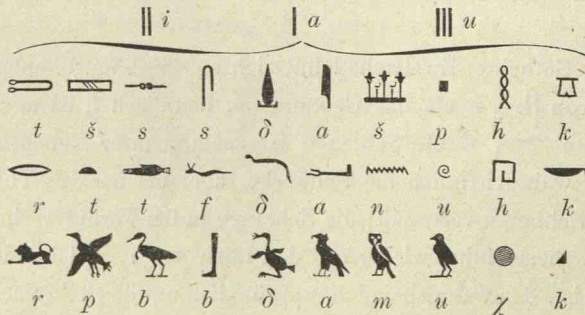 i a u
t š s s ð a š p h k
r t t f ð a n u h k
r p b b ð a m u χ k